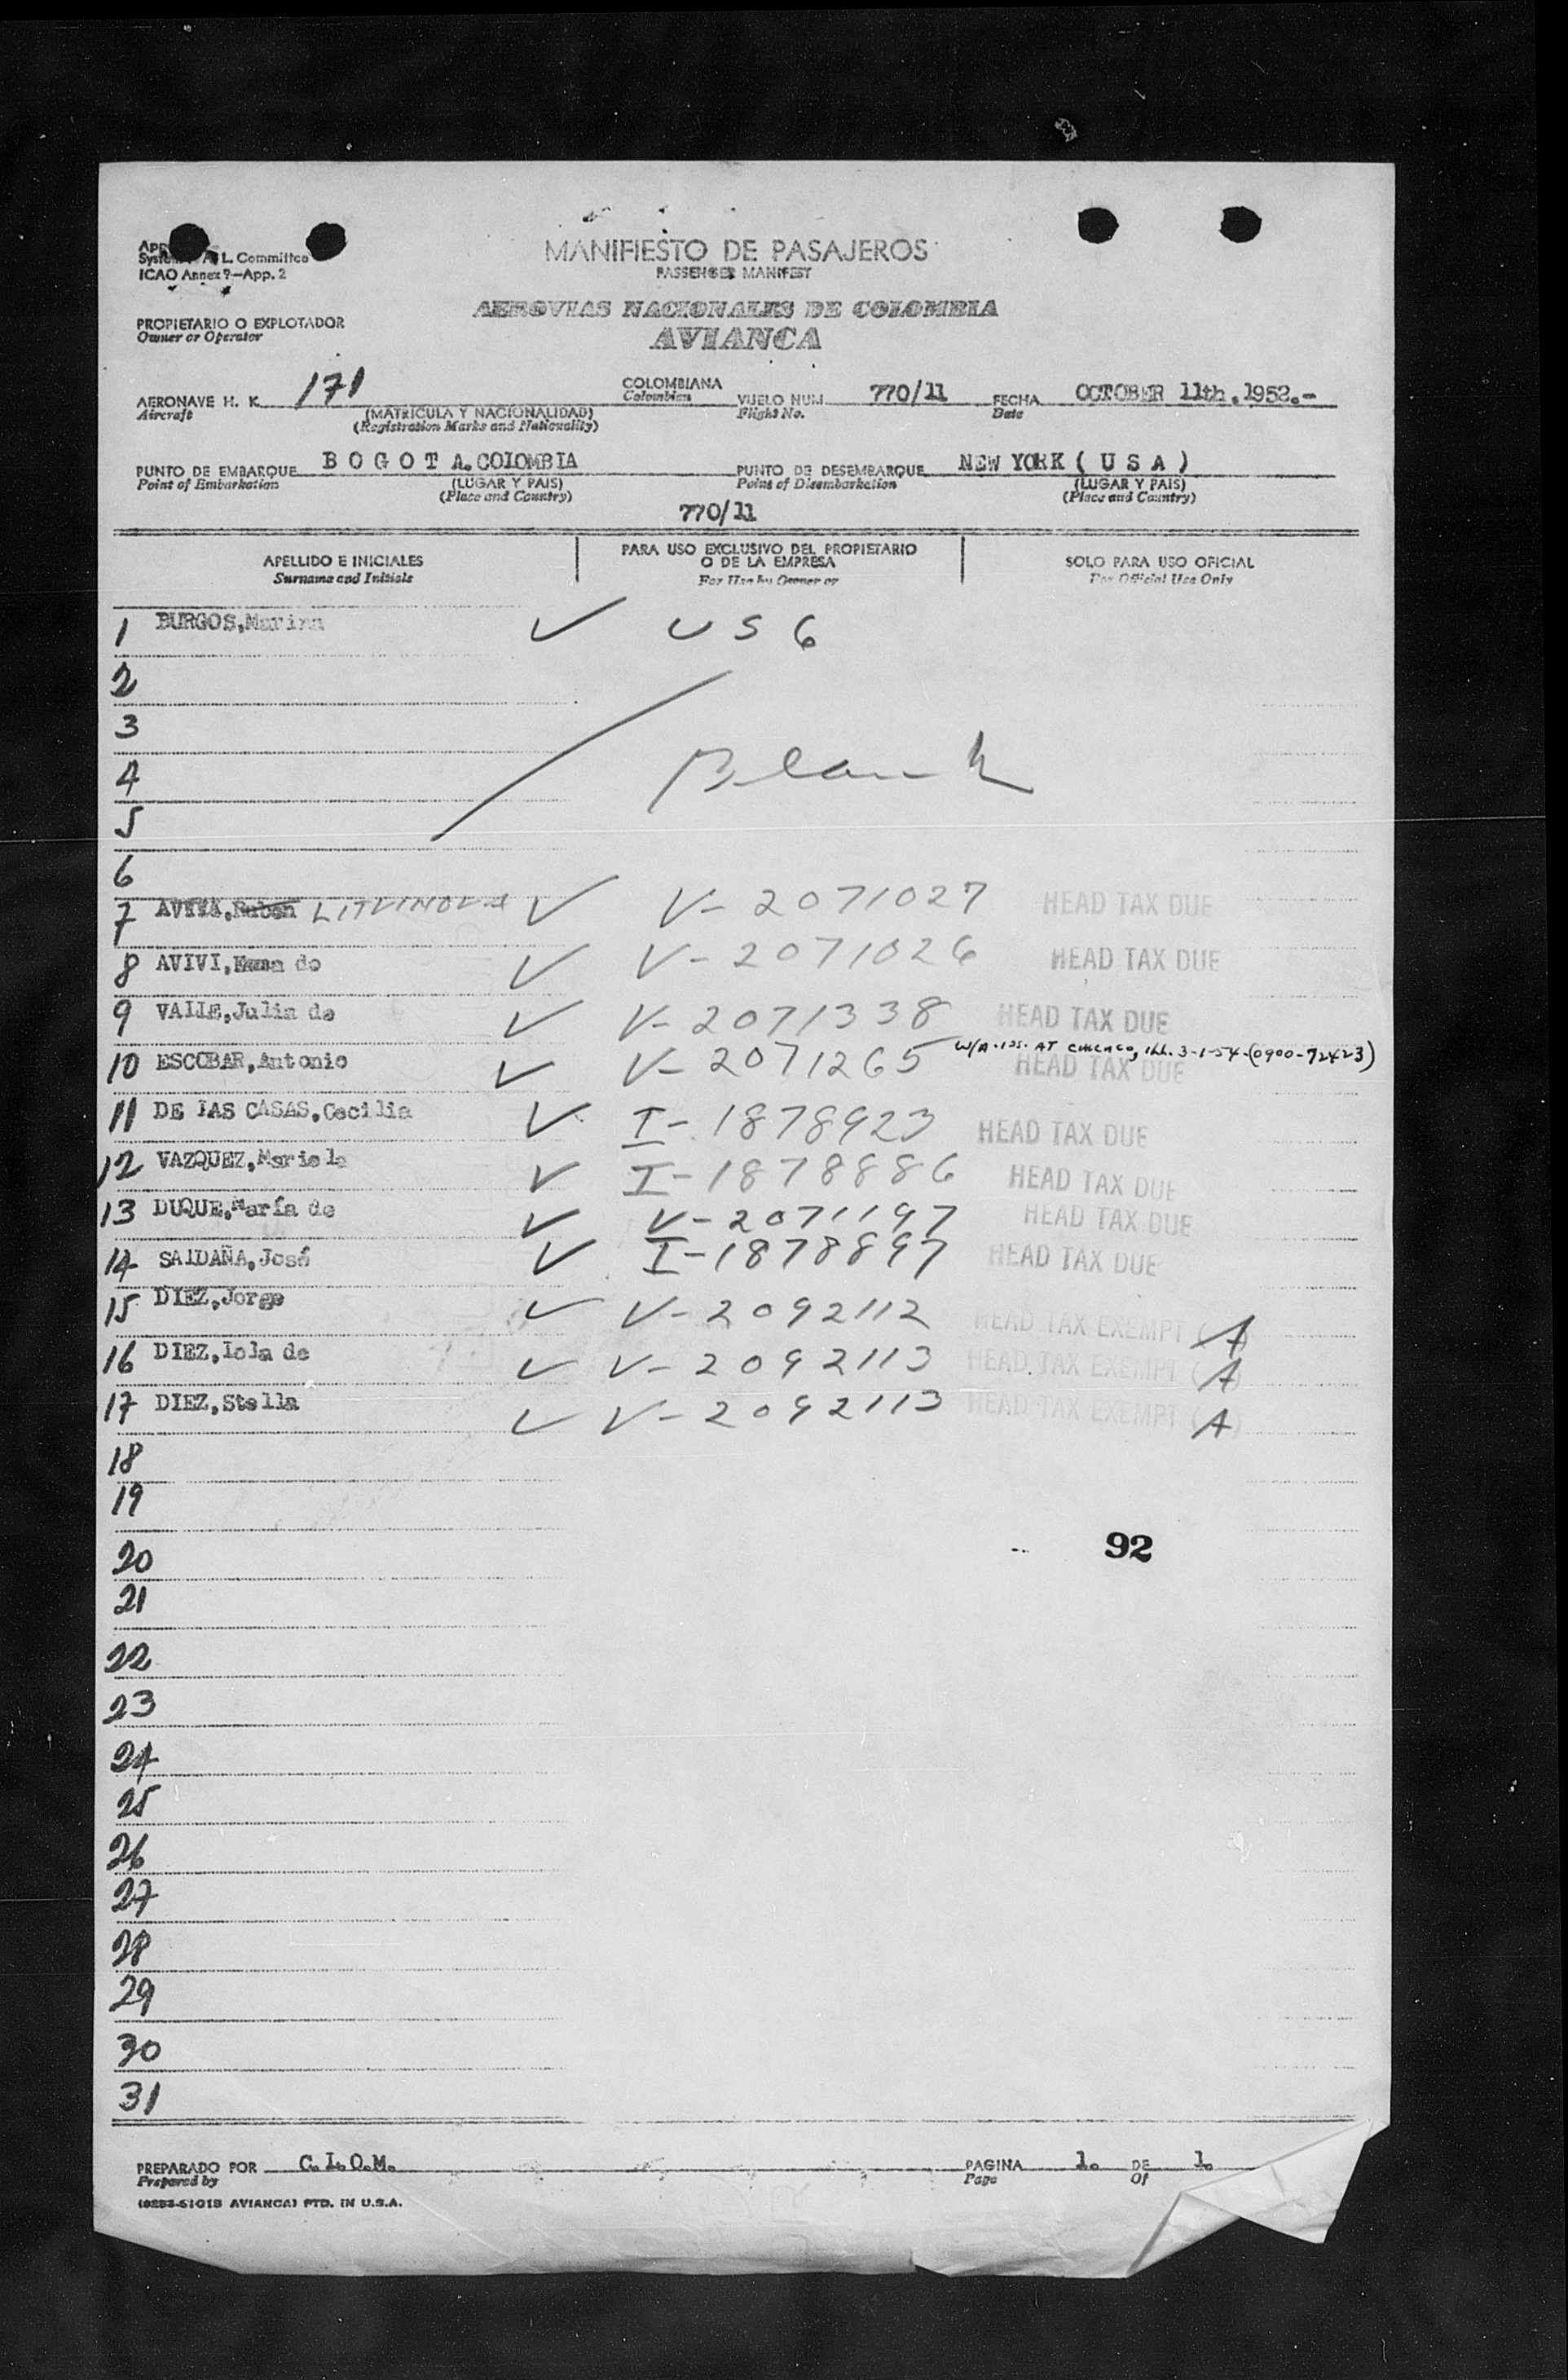 MANIFIESTO DE PASAJEROS
PASSENGER MANIFEST
L. Committee
ICAO Annex 9—App. 2
AEROVIAS NACIONALES DE COLOMBIA
AVIANCA
PROPIETARIO O EXPLOTADOR
Owner or Operator
AERONAVE H. K. 171 COLOMBIANA VUELO NUM. 770/11 FECHA OCTOBER 11th.1952.-
Aircraft (MATRICULA Y NACIONALIDAD) Colombian Flight No. Date
(Registration Marks and Nationality)
PUNTO DE EMBARQUE B O G O T A. COLOMBIA PUNTO DE DESEMBARQUE NEW YORK ( U S A )
Point of Embarkation (LUGAR Y PAIS) Point of Disembarkation (LUGAR Y PAIS)
(Place and Country) (Place and Country)
770/11
APELLIDO E INICIALES PARA USO EXCLUSIVO DEL PROPIETARIO SOLO PARA USO OFICIAL
Surname and Initials O DE LA EMPRESA For Official Use Only
For Use by Owner or
1 BURGOS,Marina ✓ US 6
2
3
4 Blank
5
6
7 LITVINOVA ✓ V-2071027 HEAD TAX DUE
8 AVIVI, de ✓ V-2071026 HEAD TAX DUE
9 VALLE,Julia de ✓ V-2071338 HEAD TAX DUE
10 ESCOBAR,Antonio ✓ V-2071265 W/A. ISS. AT CHICAGO, ILL. 3-1-54-(0900-72423) HEAD TAX DUE
11 DE LAS CASAS,Cecilia ✓ I-1878923 HEAD TAX DUE
12 VAZQUEZ,Mariela ✓ I-1878886 HEAD TAX DUE
13 DUQUE,María de ✓ V-2071197 HEAD TAX DUE
14 SALDAÑA,José ✓ I-1878897 HEAD TAX DUE
15 DIEZ,Jorge ✓ V-2092112 HEAD TAX EXEMPT (A)
16 DIEZ,Lola de ✓ V-2092113 HEAD TAX EXEMPT (A)
17 DIEZ,Stella ✓ V-2092113 HEAD TAX EXEMPT (A)
18
19
20 92
21
22
23
24
25
26
27
28
29
30
31
PREPARADO POR C.L.O.M. PAGINA 1. DE 1.
Prepared by Page Of
AVIANCA) PTD. IN U.S.A.